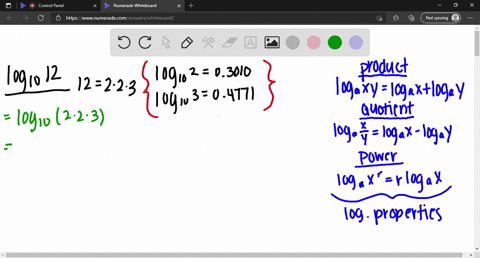 Control Panel
Numerade Whiteboard
https://www.numerade.com/answers/whiteboard/
Not syncing
log₁₀ 12
12 = 2·2·3
log₁₀ 2 = 0.3010
log₁₀ 3 = 0.4771
= log₁₀ (2·2·3)
=
product
logₐ xy = logₐ x + logₐ y
quotient
logₐ x/y = logₐ x - logₐ y
power
logₐ xʳ = r logₐ x
log. properties